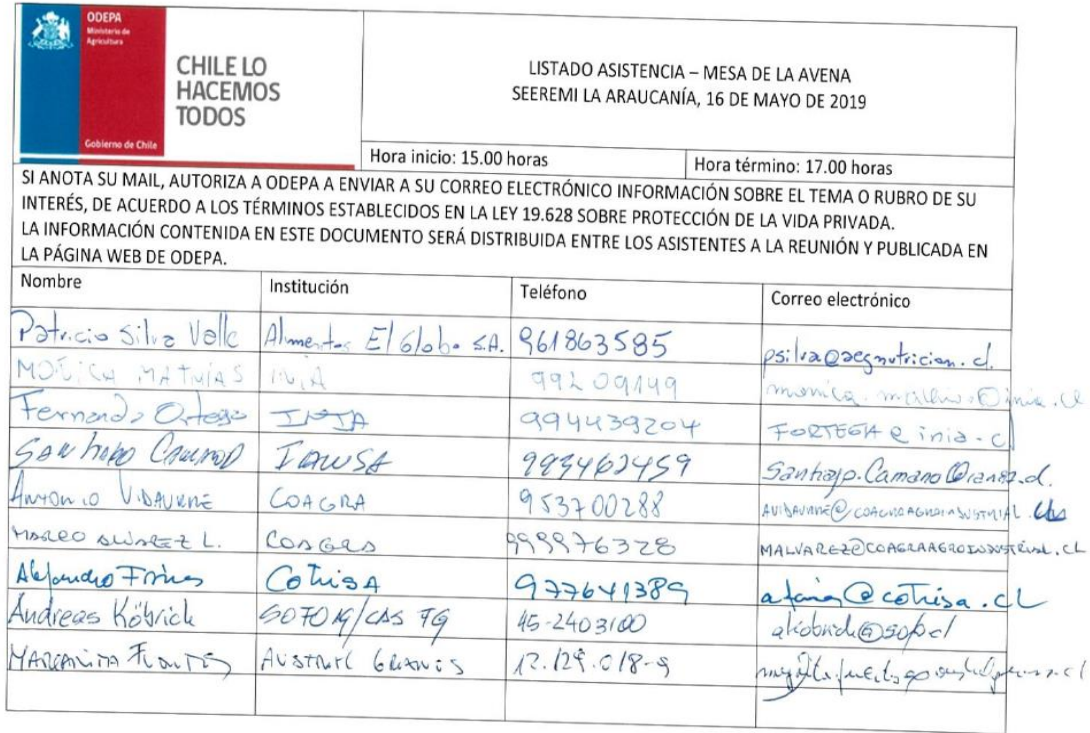 ODEPA
Ministerio de
Agricultura
CHILE LO
HACEMOS
TODOS
Gobierno de Chile
LISTADO ASISTENCIA – MESA DE LA AVENA
SEEREMI LA ARAUCANÍA, 16 DE MAYO DE 2019
Hora inicio: 15.00 horas Hora término: 17.00 horas
SI ANOTA SU MAIL, AUTORIZA A ODEPA A ENVIAR A SU CORREO ELECTRÓNICO INFORMACIÓN SOBRE EL TEMA O RUBRO DE SU
INTERÉS, DE ACUERDO A LOS TÉRMINOS ESTABLECIDOS EN LA LEY 19.628 SOBRE PROTECCIÓN DE LA VIDA PRIVADA.
LA INFORMACIÓN CONTENIDA EN ESTE DOCUMENTO SERÁ DISTRIBUIDA ENTRE LOS ASISTENTES A LA REUNIÓN Y PUBLICADA EN
LA PÁGINA WEB DE ODEPA.
Nombre Institución Teléfono Correo electrónico
Patricio Silva Valle Alimentos El Globo S.A. 961863585 psilva@aegnutricion.cl
MONICA MATHIAS INIA 99209149
Fernando Ortega INIA 994439204 FORTEGA@inia.cl
993462459
ANTONIO VIDAURRE COAGRA 953700288
MARCO ALVAREZ L. COAGRA 999976328 MALVAREZ@COAGRAAGROINDUSTRIAL.CL
Alejandro COTRISA 977641389 @cotrisa.CL
Andreas Köbrich 45-2403100
MARGARITA FUENTES 12.129.018-9